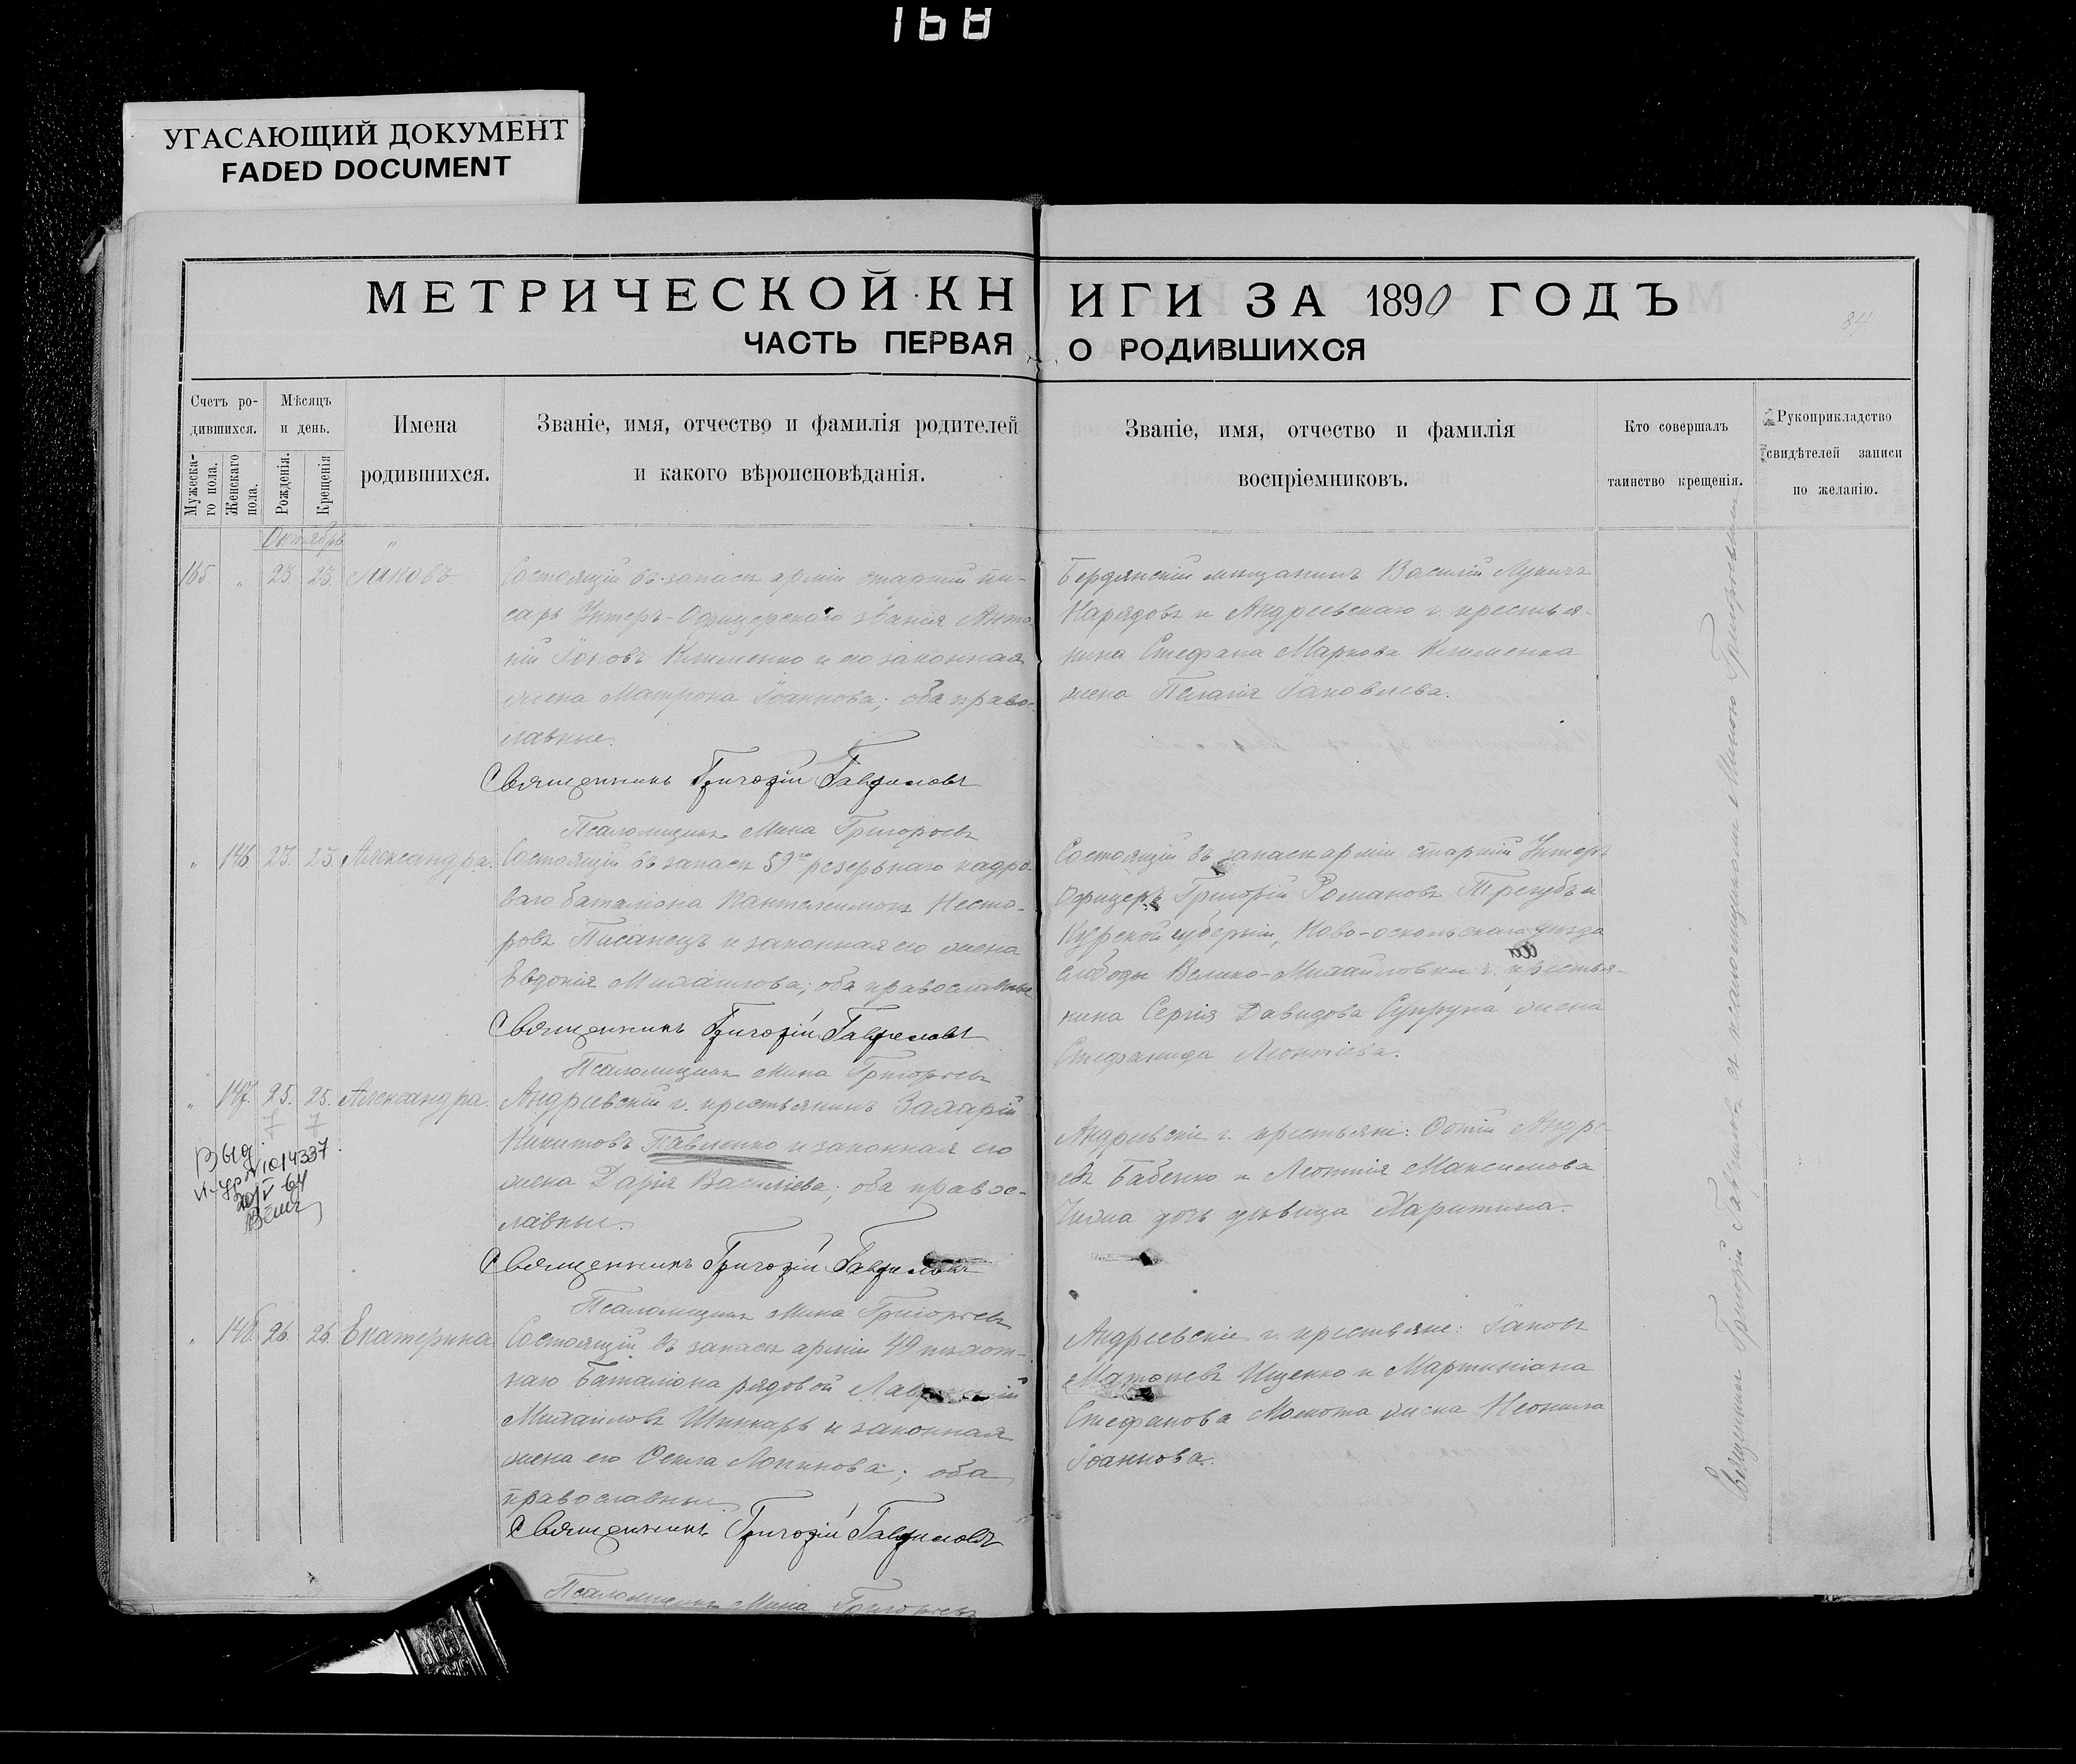 168
УГАСАЮЩИЙ ДОКУМЕНТ
FADED DOCUMENT
МЕТРИЧЕСКОЙ КНИГИ ЗА 1890 ГОДЪ
84
ЧАСТЬ ПЕРВАЯ О РОДИВШИХСЯ
Счетъ ро-
дившихся.
Мужеска-
го пола.
Женскаго
пола.
Мѣсяцъ
и день.
Рожденія.
Крещенія
Имена
родившихся.
Званіе, имя, отчество и фамилія родителей
и какого вѣроисповѣданія.
Званіе, имя, отчество и фамилія
воспріемниковъ.
Кто совершалъ
таинство крещенія.
Рукоприкладство
свидѣтелей записи
по желанію.
Октябрь
165 " 23. 23. Іаковъ
Состоящій въ запасѣ арміи старшій пи-
сарь Унтеръ-Офицерскаго званія Анто-
ній Іоновъ Клименко и его законная
жена Матрона Іоаннова; оба право-
славные.
Священникъ Григорій Гавриловъ
Псаломщикъ Мина Григорьевъ
Бердянскій мѣщанинъ Василій Лукичъ
Нарядовъ и Андреевскаго г. крестья-
нина Стефана Маркова Клименка
жена Пелагія Іаковлева.
" 146 23. 23 Александра.
Состоящій въ запасѣ 59го резервнаго кадро-
ваго баталіона Пантелеимонъ Несто-
ровъ Писанецъ и законная его жена
Евдокія Михаилова; оба православные
Священникъ Григорій Гавриловъ
Псаломщикъ Мина Григорьевъ
Состоящій въ запасѣ арміи старшій Унтеръ
Офицеръ Григорій Романовъ Трегубъ и
Курской губерніи, Ново-оскольскаго уѣзда
слободы Велико-Михайловки г. крестья-
нина Сергія Давидова Супруна жена
Стефанида Леонтіева.
" 147. 25. 25. Александра.
7 7
Выд.
№1014337
20/V 64
Андреевскій г. крестьянинъ Захарій
Никитовъ Павленко и законная его
жена Дарія Василіева; оба правос-
лавные.
Священникъ Григорій Гавриловъ
Псаломщикъ Мина Григорьевъ
Андреевскіе г. крестьяне: Фотій Андре-
евъ Бабенко и Леонтія Максимова
дочь дѣвица Харитина.
" 148. 26. 26. Екатерина
Состоящій въ запасѣ арміи 49 пѣхот-
наго Баталіона рядовой
Михаиловъ Шинкарь и законная
жена его Фекла Логинова; оба
православные.
Священникъ Григорій Гавриловъ
Псаломщикъ Мина Григорьевъ
Андреевскіе г. крестьяне: Іаковъ
Матѳеевъ Ищенко и Мартиніана
Стефанова Момота жена Неонила
Іоаннова.
Священникъ Григорій Гавриловъ съ псаломщикомъ Миною Григорьевымъ